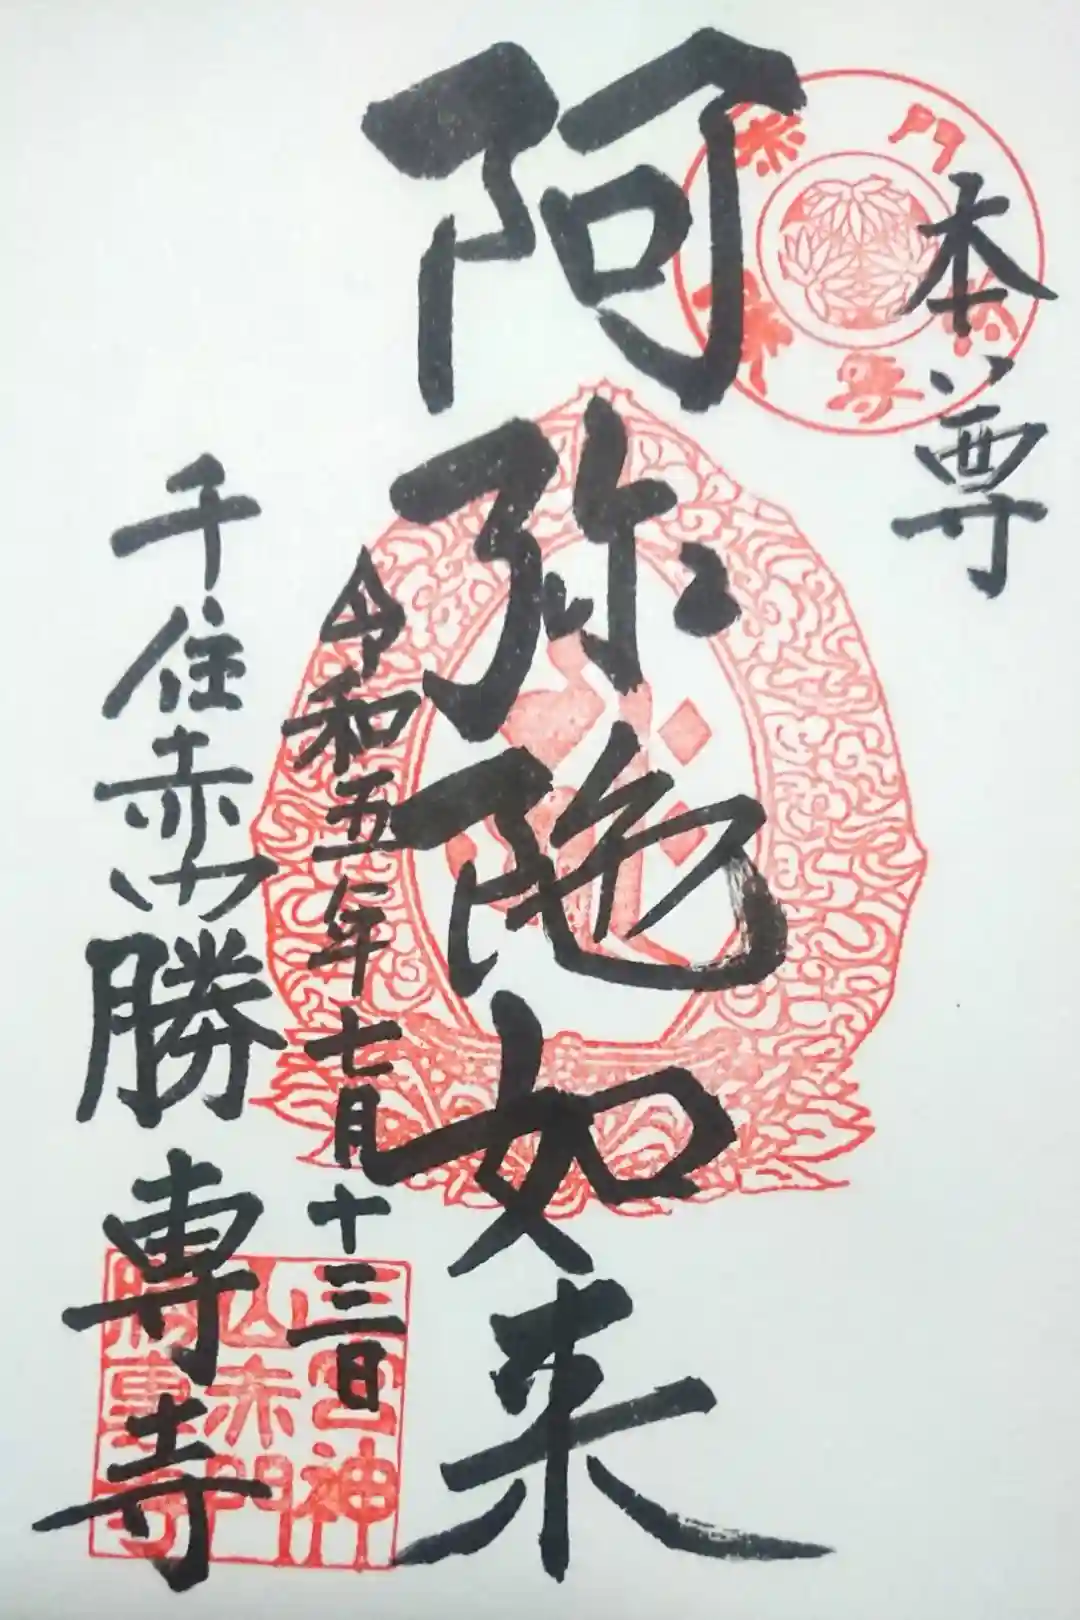 本尊
阿弥陀如来
令和五年七月十三日
千住赤門勝專寺
三宮神
山赤門
勝專寺